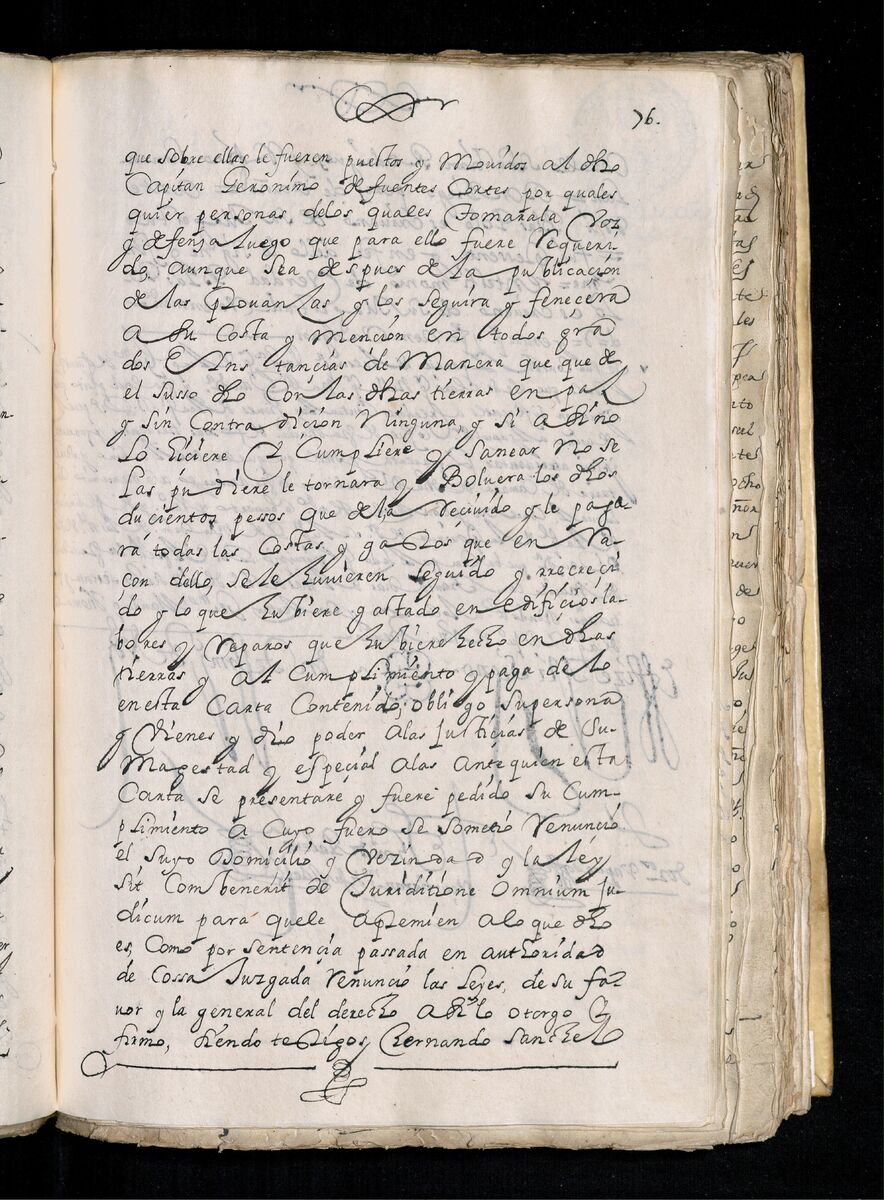 76.
que sobre ellas le fueren puestos y Movidos al dho
Capitan Geronimo de fuentes Cortes por quales
quier personas delos quales Tomarala Voz
y defensa luego que para ello fuere Requeri-
do, aunque sea despues de la publicación
de las Provanzas y los seguira y fenecera
a su Costa y Mención en todos gra
dos E Ins tancias de Manera que que de
el susso dho Con las dhas tierras en paz
y sin Contra dicion Ninguna, y si asi no
Lo hiciere Y Cumpliere y sanear No se
Las pu diere le tornara y Bolvera los dhos
ducientos pessos que del a Recivido y le paga-
rá todas las Costas y gastos que en Ra-
con dello, se le huvieren seguido y rrecreci
do y lo que hubiere gastado en edificios la-
bores y Reparos que hubiere hecho en dhas
tierras y al Cumplimiento y paga de lo
en esta Carta Contenido, obligo su persona
y Vienes y dio poder alas Justicias de Su
Magestad y especial alas Ante quien esta
Carta se presentare y fuere pedido su Cum-
plimiento a Cuyo fuero se sometió Renunció
el suyo Domicilio y Vezindad y la ley
sit Combenerit de Juriditione omnium Ju-
dicum para quele apremien a lo que dho
es, Como por sentencia passada en authoridad
de Cossa Juzgada Renunció las Leyes, de su fa-
vor y la general del derecho asi lo otorgo Y
firmo, siendo testigos, Hernando Sanchez